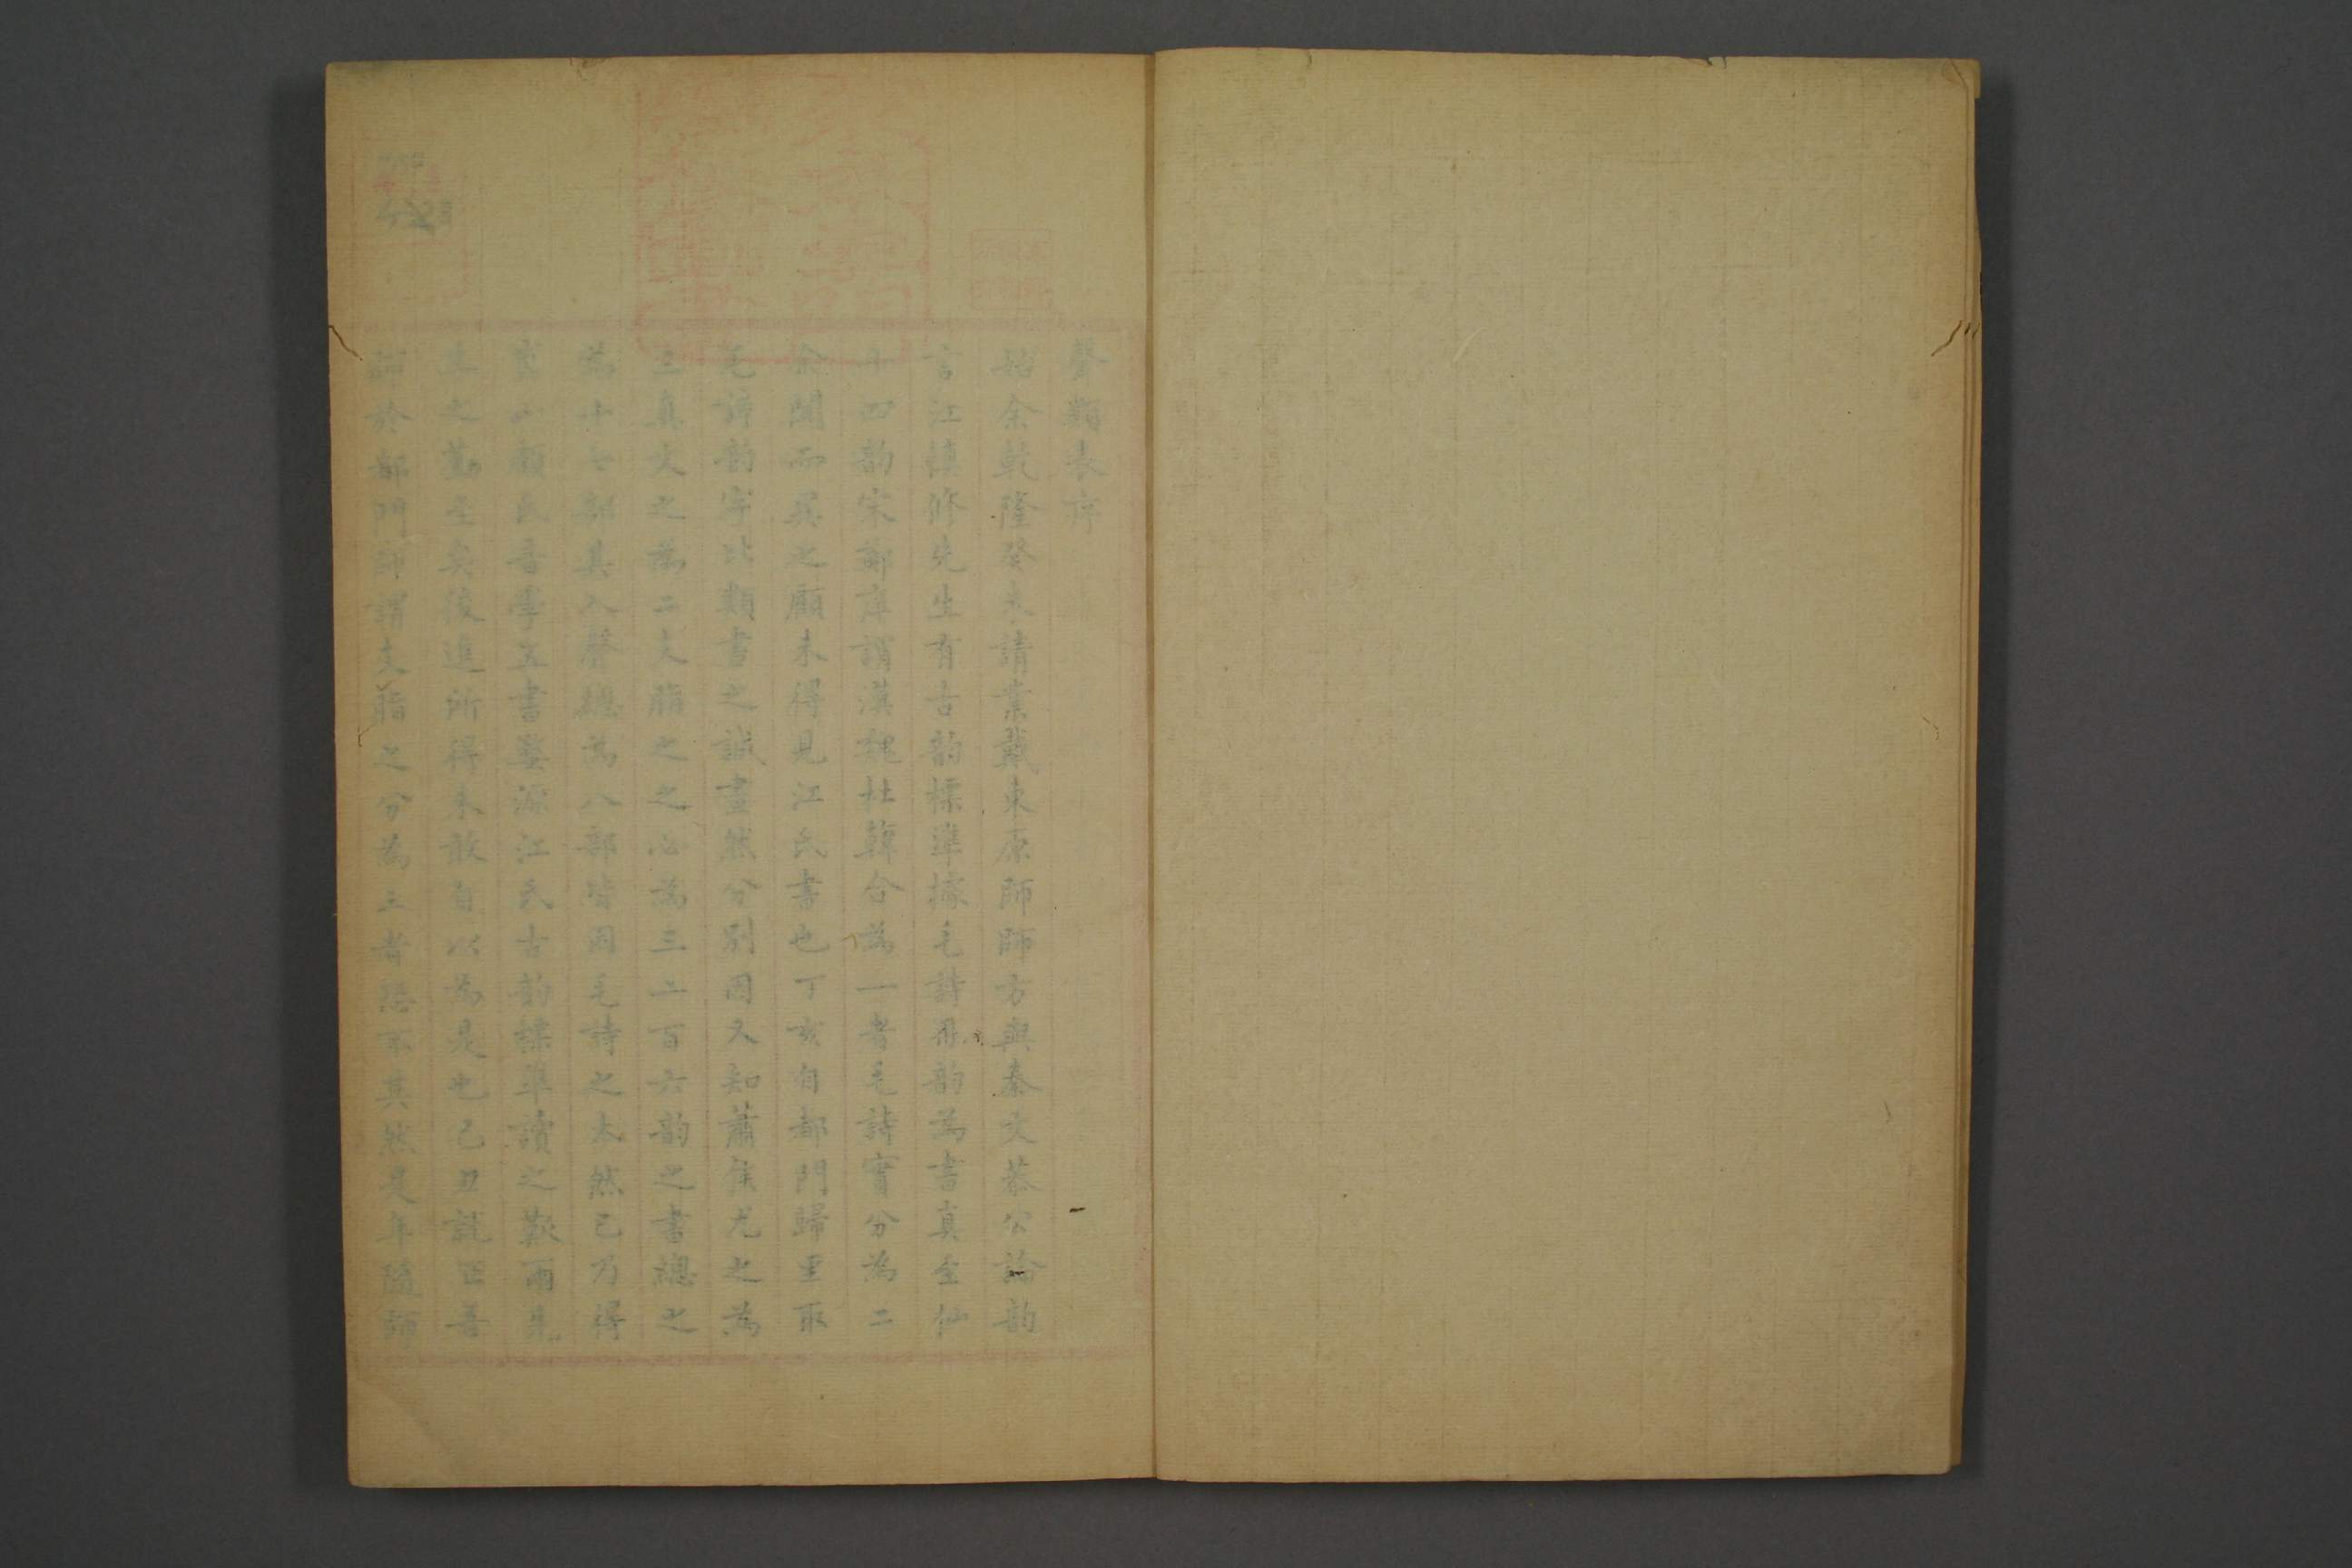 聲類表序
始余乾隆癸未請業戴東原師師方與秦文恭公論韵
言江慎修先生有古韵標準據毛詩用韵為書真至仙
十四韵宋鄭庠謂漢魏杜韓合為一者毛詩實分為二
余聞而異之顧未得見江氏書也丁亥自都門歸里取
毛詩韵字比類書之誠畫然分別因又知蕭侯尤之為
三真文之為二支脂之之必為三二百六韵之書總之
為十七部其入聲總為八部皆因毛詩之本然已乃得
崑山顧氏音學五書婺源江氏古韵標準讀之歎兩先
生之勤至矣後進所得未敢自以為是也己丑就正吾
師於都門師謂支脂之分為三者恐不其然是年隨師